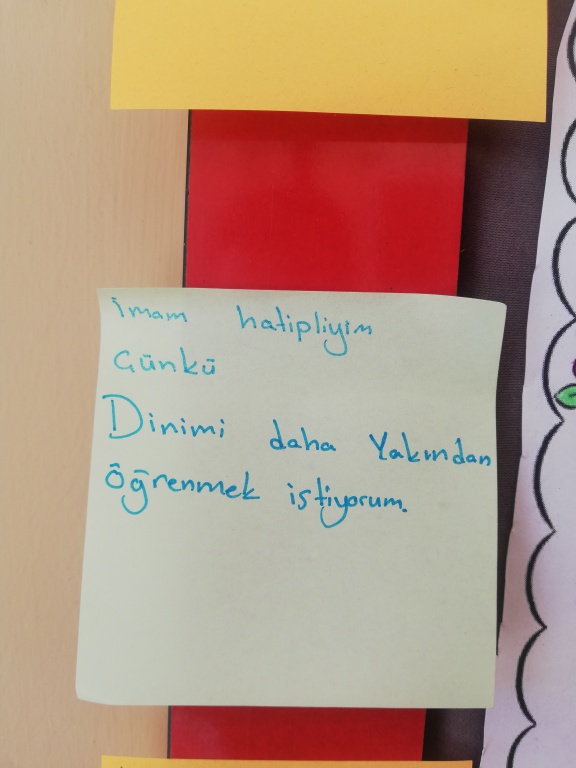 imam hatipliyim
Günkü
Dinimi daha Yakından
öğrenmek istiyorum.